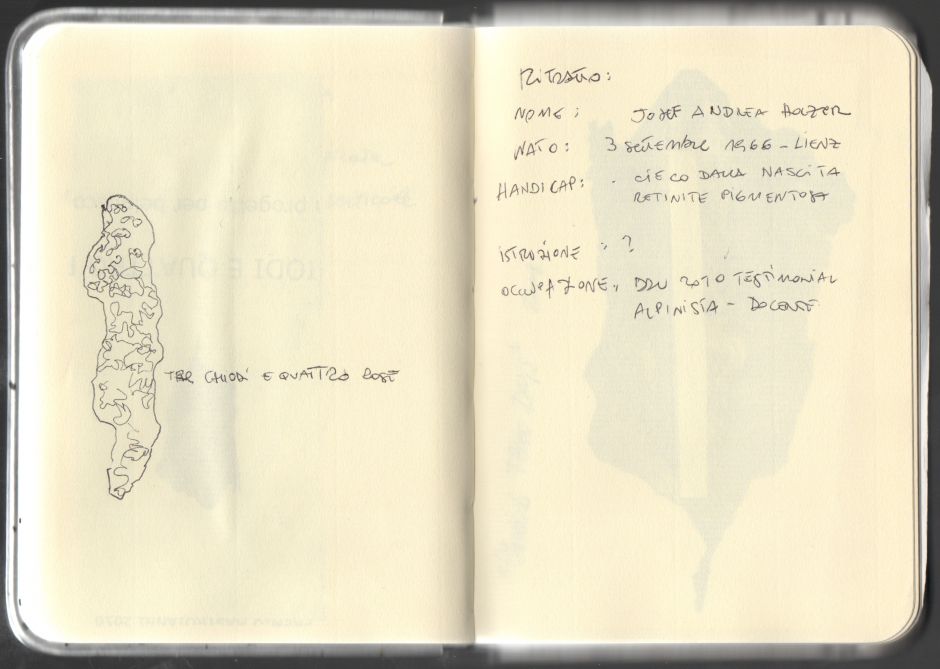 TRE CHIODI E QUATTRO ROSE
RITRATTO:
NOME: JOSEF ANDREA HOLZER
NATO: 3 SETTEMBRE 1966 - LIENZ
HANDICAP: - CIECO DALLA NASCITA
RETINITE PIGMENTOSA
ISTRUZIONE : ?
OCCUPAZIONE: TESTIMONIAL
ALPINISTA - DOCENTE